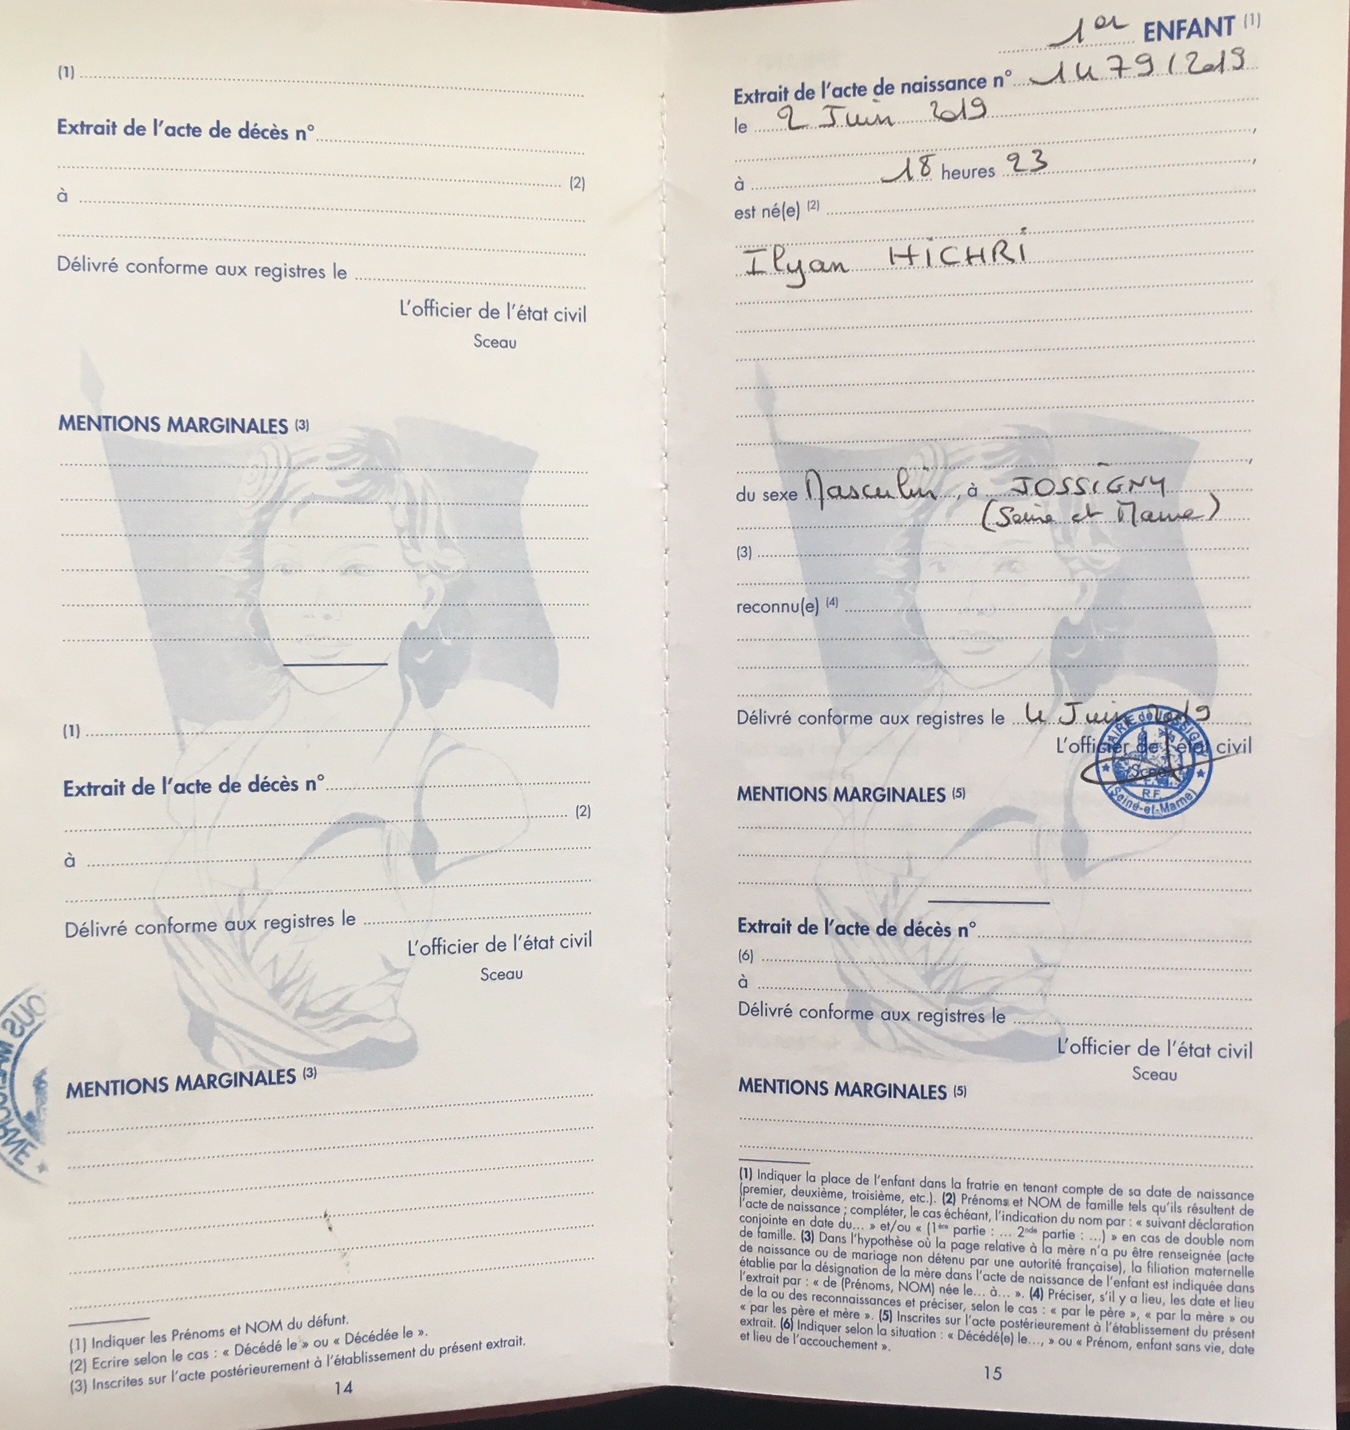 (1)
Extrait de l'acte de décès n°
(2)
à
Délivré conforme aux registres le
L'officier de l'état civil
Sceau
MENTIONS MARGINALES (3)
(1)
Extrait de l'acte de décès n°
(2)
à
Délivré conforme aux registres le
L'officier de l'état civil
Sceau
MENTIONS MARGINALES (3)
(1) Indiquer les Prénoms et NOM du défunt.
(2) Ecrire selon le cas : « Décédé le » ou « Décédée le ».
(3) Inscrites sur l'acte postérieurement à l'établissement du présent extrait.
14
1er ENFANT (1)
Extrait de l'acte de naissance n° 1479/2019
le 2 Juin 2019
,
à 18 heures 23 ,
est né(e) (2)
Ilyan HiCHRi
,
du sexe Masculin , à JOSSiGNY
(Seine et Marne)
(3)
reconnu(e) (4)
Délivré conforme aux registres le 4 Juin 2019
L'officier de l'état civil
Sceau
MAIRIE de JOSSIGNY
R.F.
(Seine-et-Marne)
MENTIONS MARGINALES (5)
Extrait de l'acte de décès n°
(6)
à
Délivré conforme aux registres le
L'officier de l'état civil
Sceau
MENTIONS MARGINALES (5)
(1) Indiquer la place de l'enfant dans la fratrie en tenant compte de sa date de naissance
(premier, deuxième, troisième, etc.). (2) Prénoms et NOM de famille tels qu'ils résultent de
l'acte de naissance ; compléter, le cas échéant, l'indication du nom par : « suivant déclaration
conjointe en date du... » et/ou « (1ère partie : ... 2nde partie : ...) » en cas de double nom
de famille. (3) Dans l'hypothèse où la page relative à la mère n'a pu être renseignée (acte
de naissance ou de mariage non détenu par une autorité française), la filiation maternelle
établie par la désignation de la mère dans l'acte de naissance de l'enfant est indiquée dans
l'extrait par : « de (Prénoms, NOM) née le... à... ». (4) Préciser, s'il y a lieu, les date et lieu
de la ou des reconnaissances et préciser, selon le cas : « par le père », « par la mère » ou
« par les père et mère ». (5) Inscrites sur l'acte postérieurement à l'établissement du présent
extrait. (6) Indiquer selon la situation : « Décédé(e) le..., » ou « Prénom, enfant sans vie, date
et lieu de l'accouchement ».
15